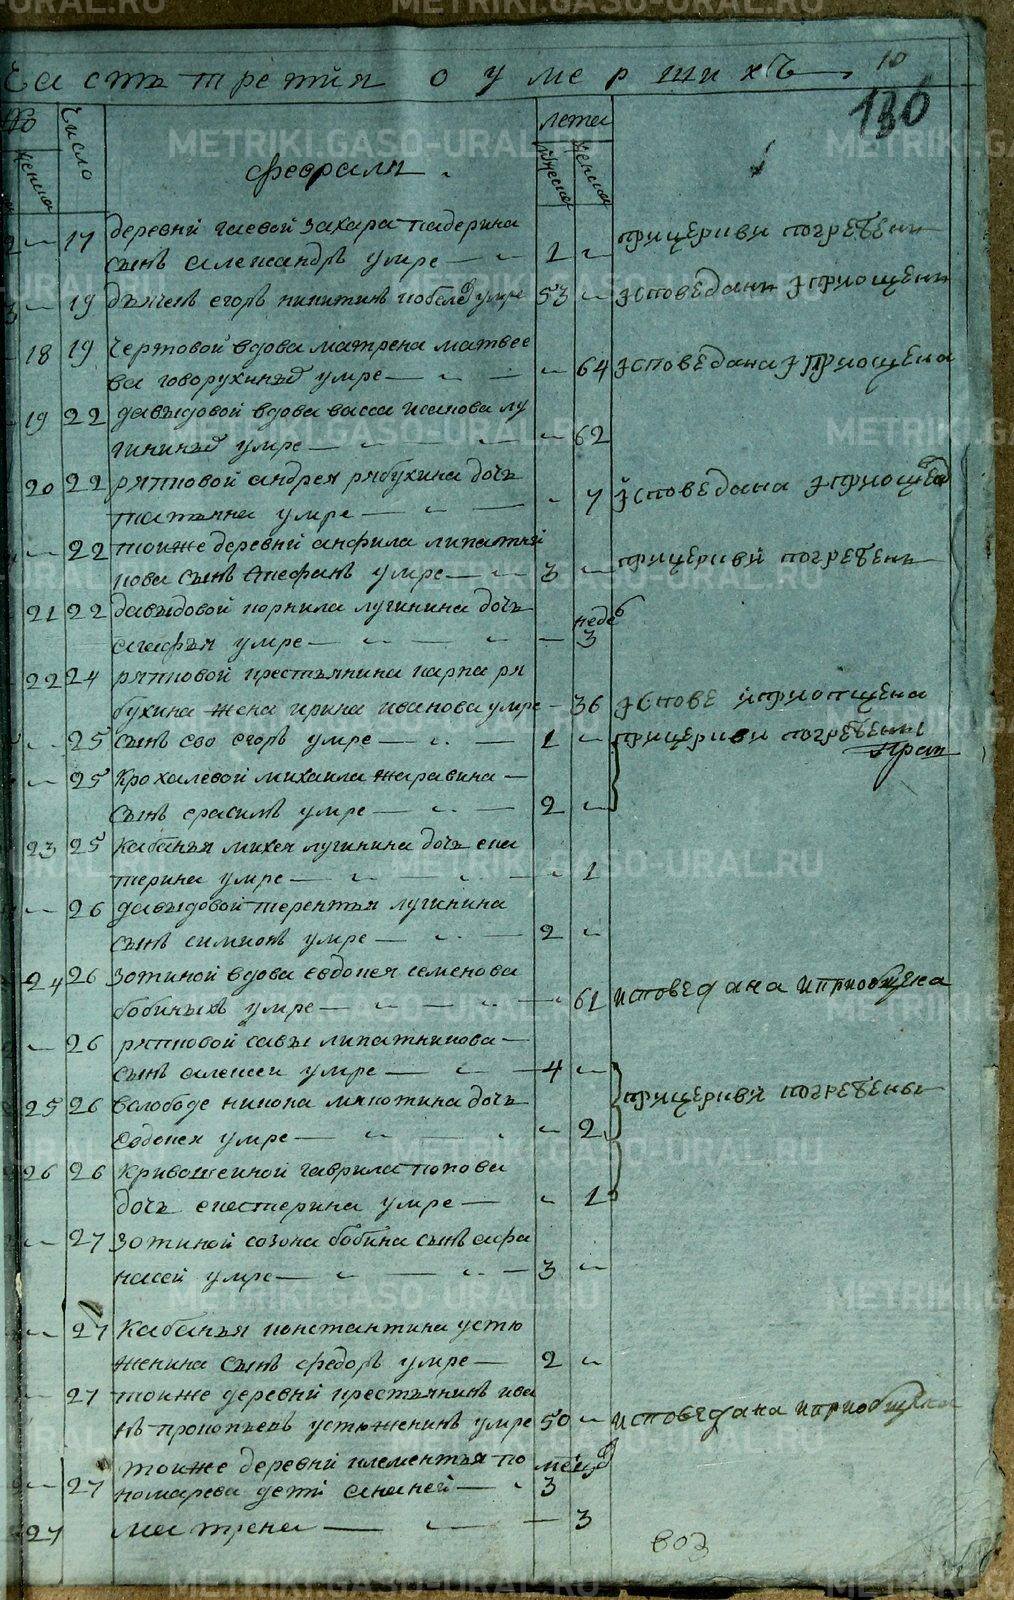 Часть третия о умершихъ
10
130
Число
лета
мужеска
женска
женска
февраля
17 деревни гаевой захара падерина
сынъ александръ умре 1 прицеркви погребенъ
19 дьячекъ егоръ никитинъ умре 53 исповеданъ и приощенъ
18 19 Чертовой вдова матрена матвее
ва говорухиныхъ умре 64 исповедана и приощена
19 22 давыдовой вдова васса исакова лу
гининыхъ умре 62
20 22 ряпповой андрея рябухина дочь
татьяна умре 7 исповедана и приощена
22 тоиже деревни анфила липатни
кова сынъ стефанъ умре 3 прицеркви погребенъ
21 22 давыдовой корнила лугинина дочь неде
агафья умре 3
22 24 ряпповой крестьянина карпа ря
бухина жена ирина иванова умре 36 испове и приопщена
25 сынъ ево егоръ умре 1 прицеркви погребены
25 Крохалевой михаила жаравина
сынъ ерасимъ умре 2
23 25 Кабанья михея лугинина дочь ека
терина умре 1
26 давыдовой терентья лугинина
сынъ симионъ умре 2
24 26 зотиной вдова евдокея семенова
бобиныхъ умре 61 исповедана и приобщена
26 ряпповой савы липатникова
сынъ алексеи умре 4
25 26 вслободе никона мякотина дочь прицеркви погребены
евдокея умре 2
26 26 Кривошеиной гаврила попова
дочь екатерина умре 1
27 зотиной созона бобина сынъ афа
насей умре 3
27 Кабанья константина устю
женина сынъ федоръ умре 2
27 тоиже деревни крестьянинъ ива
нъ прокопьевъ устюженинъ умре 50 исповедана и приобщена
тоиже деревни клементья по
27 номарева дети ананей 3
27 матрена 3
воз